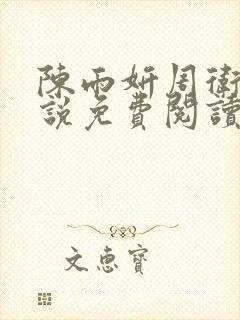 陳雨妍周衛
說免費閱讀
文惠寶